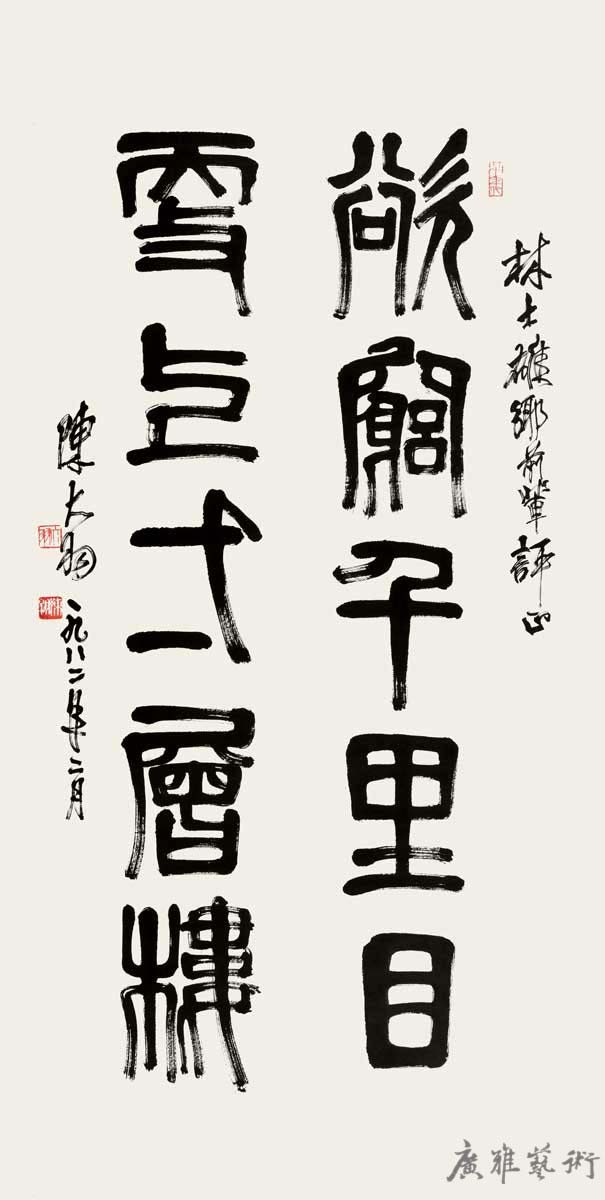 林士雄鄉前輩評正
欲窮千里目
更上弌層樓
陳大羽 一九八二年二月
廣雅藝術